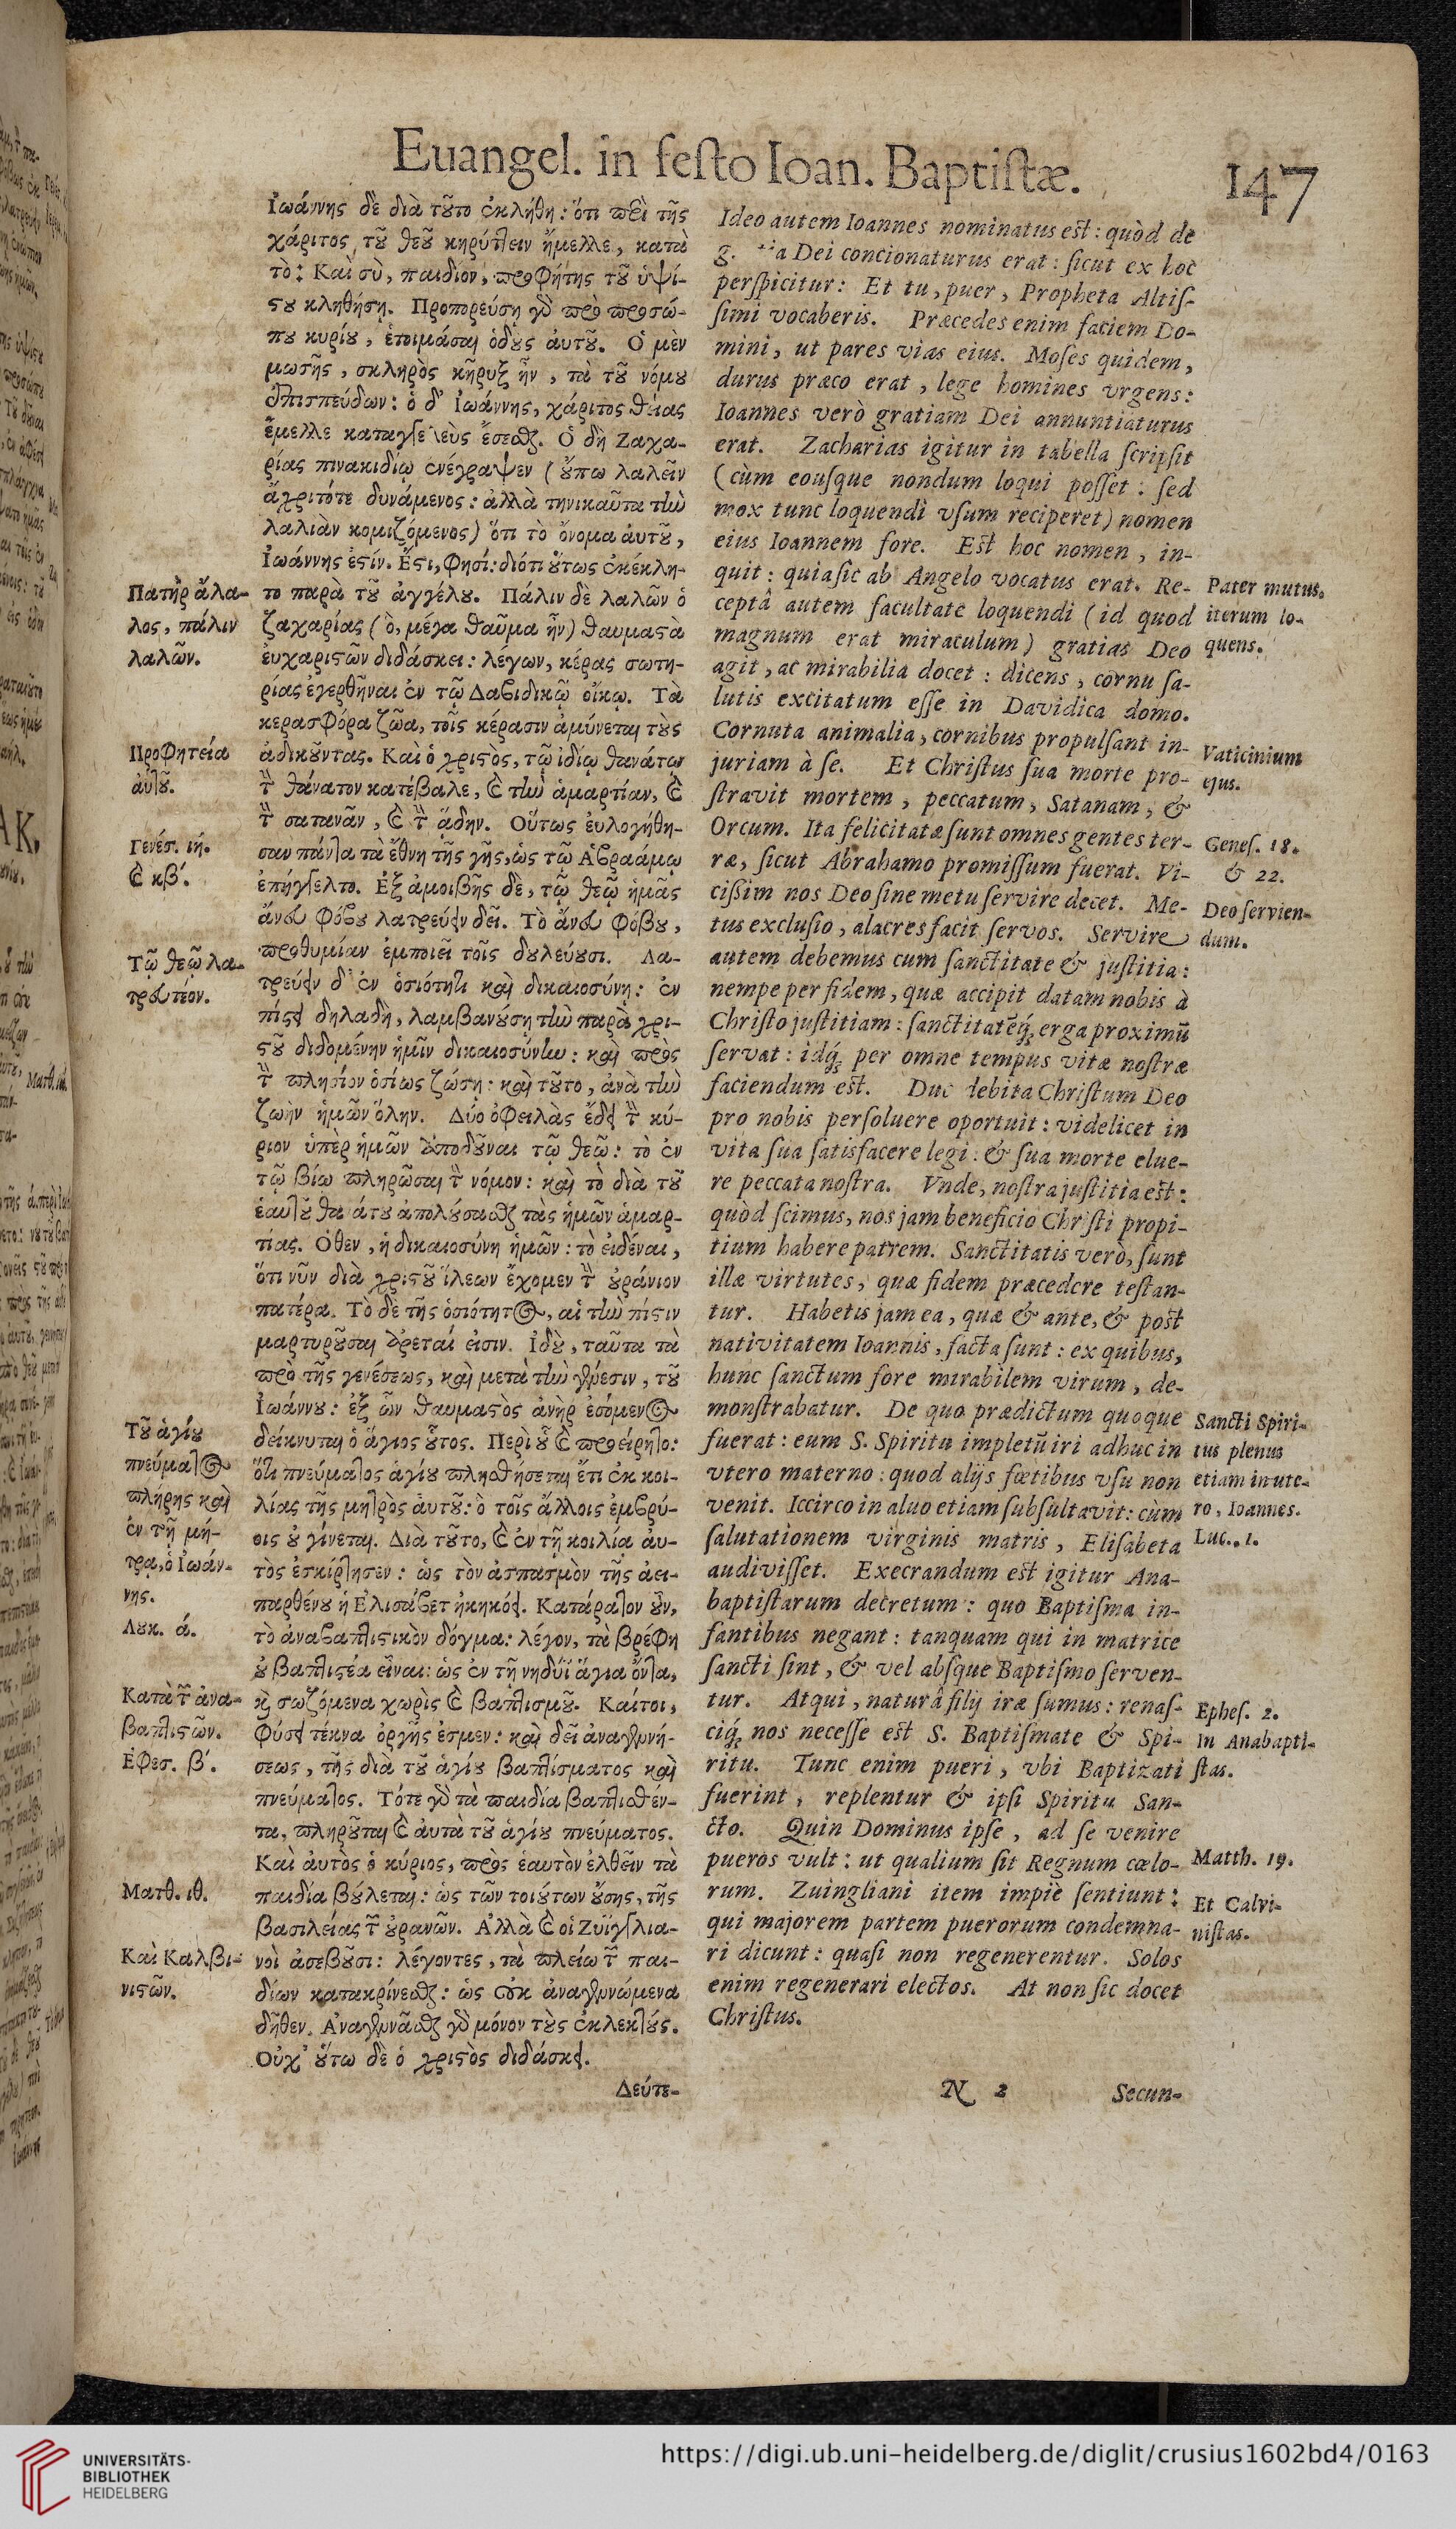 Euangel. in feſto Ioan. Baptiſtæ.
147
Ἰωάννης δὲ διὰ τȣ̃το ἐκλήθη: ὅτι περὶ τῆς
χάριτος τȣ̃ θεȣ̃ κηρύττειν ἤμελλε, κατὰ
τὸ: Καὶ σὺ, παιδίον, προφήτης τȣ̃ ὑψί-
ςȣ κληθήσῃ. Προπορεύσῃ γὸ πρὸ προσώ-
πȣ κυρίȣ, ἑτοιμάσαι ὁδȣ̀ς ἀυτȣ̃. Ὁ μὲν
μωσῆς, σκληρὸς κῆρυξ ἦν, τὰ τȣ̃ νόμȣ
ἐπισπεύδων: ὁ δ' Ἰωάννης, χάριτος θείας
ἔμελλε καταγγελεὺς ἔσεσθαι. Ὁ δὴ Ζαχα-
ρίας πινακιδίῳ ἐνέγραψεν (ȣ̓́πω λαλεῖν
ἄχρι τότε δυνάμενος: ἀλλὰ τηνικαῦτα τὴν
λαλιὰν κομιζόμενος) ὅτι τὸ ὄνομα ἀυτȣ̃,
Ἰωάννης ἐςίν. Ἔςι, φησί: διότι ȣ̔́τως ἐκέκλη-
το παρὰ τȣ̃ ἀγγέλȣ. Πάλιν δὲ λαλῶν ὁ
ζαχαρίας (ὃ, μέγα θαῦμα ἦν) θαυμαςὰ
ἐυχαριςῶν διδάσκει: λέγων, κέρας σωτη-
ρίας ἐγερθῆναι ἐν τῷ Δαβιδικῷ οἴκῳ. Τὰ
κερασφόρα ζῶα, τοῖς κέρασιν ἀμύνεται τȣ̀ς
ἀδικȣ̃ντας. Καὶ ὁ χριςὸς, τῷ ἰδίῳ θανάτῳ
τὸν θάνατον κατέβαλε, καὶ τὴν ἁμαρτίαν, καὶ
τὸν σατανᾶν, καὶ τὸν ᾅδην. Οὕτως ἐυλογήθη-
σαν πάντα τὰ ἔθνη τῆς γῆς, ὡς τῷ Ἀβραάμῳ
ἐπήγγελτο. Ἐξ ἀμοιβῆς δὲ, τῷ θεῷ ἡμᾶς
ἄνευ φόβȣ λατρεύειν δεῖ. Τὸ ἄνευ φόβȣ,
προθυμίαν ἐμποιεῖ τοῖς δȣλεύȣσι. Λα-
τρεύειν δ' ἐν ὁσιότητι καὶ δικαιοσύνῃ: ἐν
πίςει δηλαδὴ, λαμβανȣ́σῃ τὴν παρὰ χρι-
ςȣ̃ διδομένην ἡμῖν δικαιοσύνην: καὶ πρὸς
τὸν πλησίον ὁσίως ζώσῃ: καὶ τȣ̃το, ἀνὰ τὴν
ζωὴν ἡμῶν ὅλην. Δύο ὀφειλὰς ἔδει τὸν κύ-
ριον ὑπὲρ ἡμῶν ἀποδȣ̃ναι τῷ θεῷ: τὸ ἐν
τῷ βίῳ πληρῶσαι τὸν νόμον: καὶ τὸ διὰ τȣ̃
ἑαυτȣ̃ θανάτȣ ἀπολȣ́σασθαι τὰς ἡμῶν ἁμαρ-
τίας. Ὅθεν, ἡ δικαιοσύνη ἡμῶν: τὸ εἰδέναι,
ὅτι νῦν διὰ χριςȣ̃ ἵλεων ἔχομεν τὸν ȣ̓ράνιον
πατέρα. Τὸ δὲ τῆς ὁσιότητος, αἱ τὴν πίςιν
μαρτυρȣ̃σαι ἀρεταί εἰσιν. Ἰδȣ̀, ταῦτα τὰ
πρὸ τῆς γενέσεως, καὶ μετὰ τὴν γένεσιν, τȣ̃
Ἰωάννȣ: ἐξ ὧν θαυμαςὸς ἀνὴρ ἐσόμενος
δείκνυται ὁ ἅγιος ȣ̔͂τος. Περὶ ȣ̔͂ καὶ προείρητο:
ὅτι πνεύματος ἁγίȣ πλησθήσεται ἔτι ἐκ κοι-
λίας τῆς μητρὸς ἁυτȣ̃: ὃ τοῖς ἄλλοις ἐμβρύ-
οις ȣ̓ γίνεται. Διὰ τȣ̃το, καὶ ἐν τῇ κοιλίᾳ ἀυ-
τὸς ἐσκίρτησεν: ὡς τὸν ἀσπασμὸν τῆς ἀει-
παρθένȣ ἡ Ἐλισάβετ ἠκηκόει. Κατάρατον ȣ̓͂ν,
τὸ ἀναβαπτιςικὸν δόγμα: λέγον, τὰ βρέφη
ȣ̓ βαπτιςέα εἶναι: ὡς ἐν τῇ νηδύϊ ἅγια ὄντα,
καὶ σωζόμενα χωρὶς καὶ βαπτισμȣ̃. Καίτοι,
φύσει τέκνα ὀργῆς ἐσμεν: καὶ δεῖ ἀναγεννή-
σεως, τῆς διὰ τȣ̃ ἁγίȣ βαπτίσματος καὶ
πνεύματος. Τότε γὸ τὰ παιδία βαπτισθέν-
τα, πληρȣ̃ται καὶ ἀυτὰ τȣ̃ ἁγίȣ πνεύματος.
Καὶ ἀυτὸς ὁ κύριος, πρὸς ἑαυτὸν ἐλθεῖν τὰ
παιδία βȣ́λεται: ὡς τῶν τοιȣ́των ȣ̓́σης, τῆς
βασιλείας τῶν ȣ̓ρανῶν. Ἀλλὰ καὶ οἱ Ζυϊγγλια-
νοὶ ἀσεβȣ̃σι: λέγοντες, τὰ πλείω τῶν παι-
δίων κατακρίνεσθαι: ὡς ȣ̓κ ἀναγεννώμενα
δῆθεν. Ἀναγεννᾶσθαι γὸ μόνον τȣ̀ς ἐκλεκτȣ́ς.
Οὐχ' ȣ̔́τω δὲ ὁ χριςὸς διδάσκει.
Δεύτε-
Πατὴρ ἄλα-
λος, πάλιν
λαλῶν.
Προφητεία
ἀυτȣ̃.
Γενέσ. ιή.
καὶ κβ'.
Τῷ θεῷ λα-
τρευτέον.
Τȣ̃ ἁγίȣ
πνεύματος
πλήρης καὶ
ἐν τῇ μή-
τρᾳ, ὁ Ἰωάν-
νης.
Λȣκ. ά.
Κατὰ τῶν ἀνα-
βαπτιςῶν.
Ἐφεσ. β'.
Ματθ. ιθ.
Καὶ Καλβι-
νιςῶν.
Ideo autem Ioannes nominatus eſt: quòd de
Dei concionaturus erat: ſicut ex hoc
perſpicitur: Et tu, puer, Propheta Altiſ-
ſimi vocaberis. Præcedes enim faciem Do-
mini, ut pares vias eius. Moſes quidem,
durus præco erat, lege homines vrgens:
Ioannes verò gratiam Dei annuntiaturus
erat. Zacharias igitur in tabella ſcripſit
(cùm eouſque nondum loqui poſſet: ſed
mox tunc loquendi vſum reciperet) nomen
eius Ioannem fore. Eſt hoc nomen, in-
quit: quia ſic ab Angelo vocatus erat. Re-
ceptâ autem facultate loquendi (id quod
magnum erat miraculum) gratias Deo
agit, ac mirabilia docet: dicens, cornu ſa-
lutis excitatum eſſe in Davidica domo.
Cornuta animalia, cornibus propulſant in-
juriam à ſe. Et Chriſtus ſua morte pro-
ſtravit mortem, peccatum, Satanam, &
Orcum. Ita felicitatæ ſunt omnes gentes ter-
ræ, ſicut Abrahamo promiſſum fuerat. Vi-
ciſsim nos Deo ſine metu ſervire decet. Me-
tus excluſio, alacres facit ſervos. Servire
autem debemus cum ſanctitate & juſtitia:
nempe per fidem, quæ accipit datam nobis à
Chriſto juſtitiam: ſanctitatēq́; erga proximū
ſervat: idq́; per omne tempus vitæ noſtræ
faciendum eſt. Duo debita Chriſtum Deo
pro nobis perſoluere oportuit: videlicet in
vita ſua ſatisfacere legi: & ſua morte elue-
re peccata noſtra. Vnde, noſtra juſtitia eſt:
quòd ſcimus, nos jam beneficio Chriſti propi-
tium habere patrem. Sanctitatis verò, ſunt
illæ virtutes, quæ fidem præcedere teſtan-
tur. Habetis jam ea, quæ & ante, & poſt
nativitatem Ioannis, facta ſunt: ex quibus,
hunc ſanctum fore mirabilem virum, de-
monſtrabatur. De quo prædictum quoque
fuerat: eum S. Spiritu impletū iri adhuc in
vtero materno: quod alijs fœtibus vſu non
venit. Iccirco in aluo etiam ſubſultavit: cùm
ſalutationem virginis matris, Eliſabeta
audiviſſet. Execrandum eſt igitur Ana-
baptiſtarum decretum: quo Baptiſma in-
fantibus negant: tanquam qui in matrice
ſancti ſint, & vel abſque Baptiſmo ſerven-
tur. Atqui, naturâ filij iræ ſumus: renaſ-
ciq́; nos neceſſe eſt S. Baptiſmate & Spi-
ritu. Tunc enim pueri, vbi Baptizati
fuerint, replentur & ipſi Spiritu San-
cto. Quin Dominus ipſe, ad ſe venire
pueros vult: ut qualium ſit Regnum cœlo-
rum. Zuingliani item impiè ſentiunt:
qui majorem partem puerorum condemna-
ri dicunt: quaſi non regenerentur. Solos
enim regenerari electos. At non ſic docet
Chriſtus.
N 2 Secun-
Pater mutus,
iterum lo-
quens.
Vaticinium
ejus.
Geneſ. 18.
& 22.
Deo ſervien-
dum.
Sancti Spiri-
tus plenus
etiam in ute-
ro, Ioannes.
Luc. 1.
Epheſ. 2.
In Anabapti-
ſtas.
Matth. 19.
Et Calvi-
niſtas.
UNIVERSITÄTS-
BIBLIOTHEK
HEIDELBERG
https://digi.ub.uni-heidelberg.de/diglit/crusius1602bd4/0163